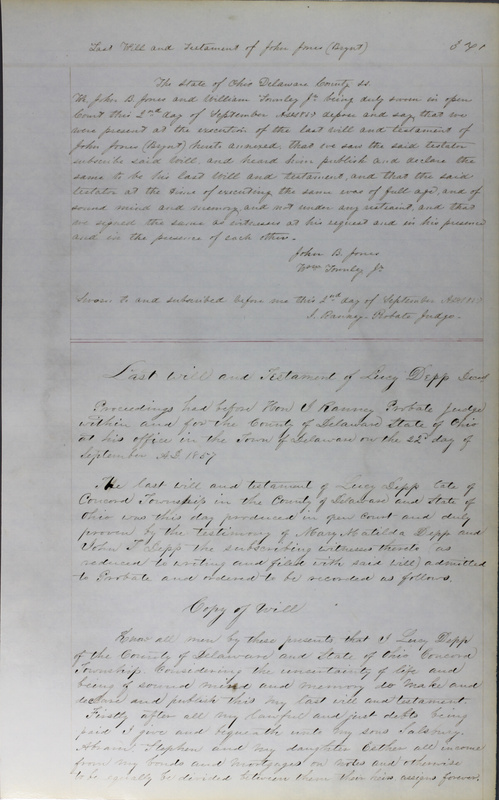 Last Will and Testament of John Jones (Brynt)
The State of Ohio Delaware County ss.
We John B. Jones and William Townley Jr. being duly sworn in open
Court this 2nd day of September depose and say, that we
were present at the execution of the last will and testament of
John Jones (Brynt) hereto annexed, that we saw the said testator
subscribe said will, and heard him publish and declare the
same to be his last will and testament, and that the said
testator at the time of executing the same was of full age, and of
sound mind and memory and not under any restraint, and that
we signed the same as witnesses at his request and in his presence
and in the presence of each other.
John B. Jones
Wm Townley Jr.
Sworn to and subscribed before me this 2nd day of September
Ranney Probate Judge.
Last will and Testament of Lucy Depp Decd
Proceedings had before Hon Ranney Probate Judge
within and for the County of Delaware State of Ohio
at his office in the Town of Delaware on the 22 day of
September A.D. 1857
The last will and testament of Lucy Depp late of
Concord Township in the County of Delaware and State of
Ohio was this day produced in open court and duly
proven by the testimony of Mary Matilda Depp and
John Depp the subscribing witnesses thereto as
reduced to writing and filed with said will) admitted
to Probate and ordered to be recorded as follows.
Copy of Will
Know all men by these presents that I Lucy Depp
of the County of Delaware and State of Ohio Concord
Township. Considering the uncertainty of life and
being of sound mind and memory do make and
declare and publish this my last will and testament.
Firstly after all my lawful and just debts being
paid I give and bequeath unto my sons Salsbury.
Abram Stephen and my daughter Esther all income
from my bonds and mortgages on notes and otherwise
to be equally be divided between them their heirs assigns forever.